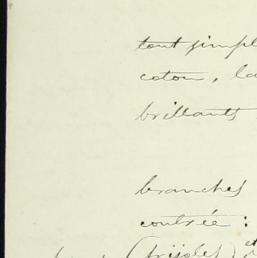 tout simpl
coton, la
brillants
branches
contrée :
(frijoles) et